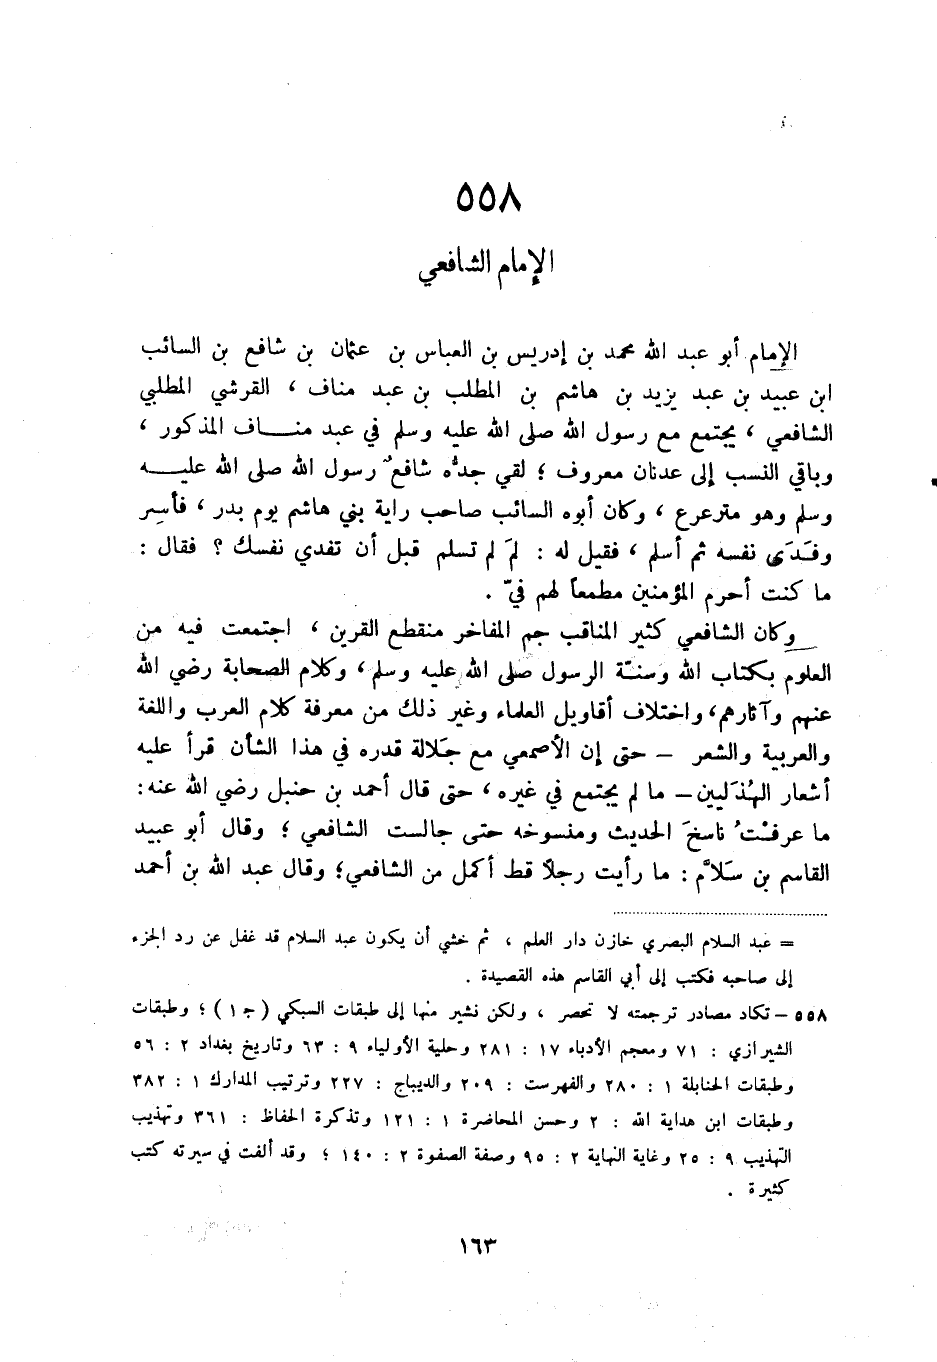 ٥٥٨
الإمام الشافعي
الإمام أبو عبد الله محمد بن إدريس بن العباس بن عثمان بن شافع بن السائب
ابن عبيد بن عبد يزيد بن هاشم بن المطلب بن عبد مناف ، القرشي المطلبي
الشافعي ، يجتمع مع رسول الله صلى الله عليه وسلم في عبد منـاف المذكور ،
وباقي النسب إلى عدنان معروف ؛ لقي جدُّه شافعٌ رسول الله صلى الله عليـه
وسلم وهو مترعرع ، وكان أبوه السائب صاحب راية بني هاشم يوم بدر ، فأسِر
وفَدَى نفسه ثم أسلم ، فقيل له : لمَ لم تسلم قبل أن تفدي نفسك ؟ فقال :
ما كنت أحرم المؤمنين مطمعاً لهم فيّ .
وكان الشافعي كثير المناقب جم المفاخر منقطع القرين ، اجتمعت فيه من
العلوم بكتاب الله وسنّة الرسول صلى الله عليه وسلم ، وكلام الصحابة رضي الله
عنهم وآثارهم، واختلاف أقاويل العلماء وغير ذلك من معرفة كلام العرب واللغة
والعربية والشعر – حتى إن الأصمعي مع جَلالة قدره في هذا الشأن قرأ عليه
أشعار الهُذَليين – ما لم يجتمع في غيره ، حتى قال أحمد بن حنبل رضي الله عنه:
ما عرفتُ ناسخَ الحديث ومنسوخه حتى جالست الشافعي ؛ وقال أبو عبيد
القاسم بن سَلاَّم : ما رأيت رجلاً قط أكمل من الشافعي؛ وقال عبد الله بن أحمد
= عبد السلام البصري خازن دار العلم ، ثم خشي أن يكون عبد السلام قد غفل عن رد الجزء
إلى صاحبه فكتب إلى أبي القاسم هذه القصيدة .
٥٥٨ – تكاد مصادر ترجمته لا تحصر ، ولكن نشير منها إلى طبقات السبكي ( ج ١ ) ؛ وطبقات
الشيرازي : ٧١ ومعجم الأدباء ١٧ : ٢٨١ وحلية الأولياء ٩ : ٦٣ وتاريخ بغداد ٢ : ٥٦
وطبقات الحنابلة ١ : ٢٨٠ والفهرست : ٢٠٩ والديباج : ٢٢٧ وترتيب المدارك ١ : ٣٨٢
وطبقات ابن هداية الله : ٢ وحسن المحاضرة ١ : ١٢١ وتذكرة الحفاظ : ٣٦١ وتهذيب
التهذيب ٩ : ٢٥ وغاية النهاية ٢ : ٩٥ وصفة الصفوة ٢ : ١٤٠ ؛ وقد ألفت في سيرته كتب
كثيرة .
١٦٣